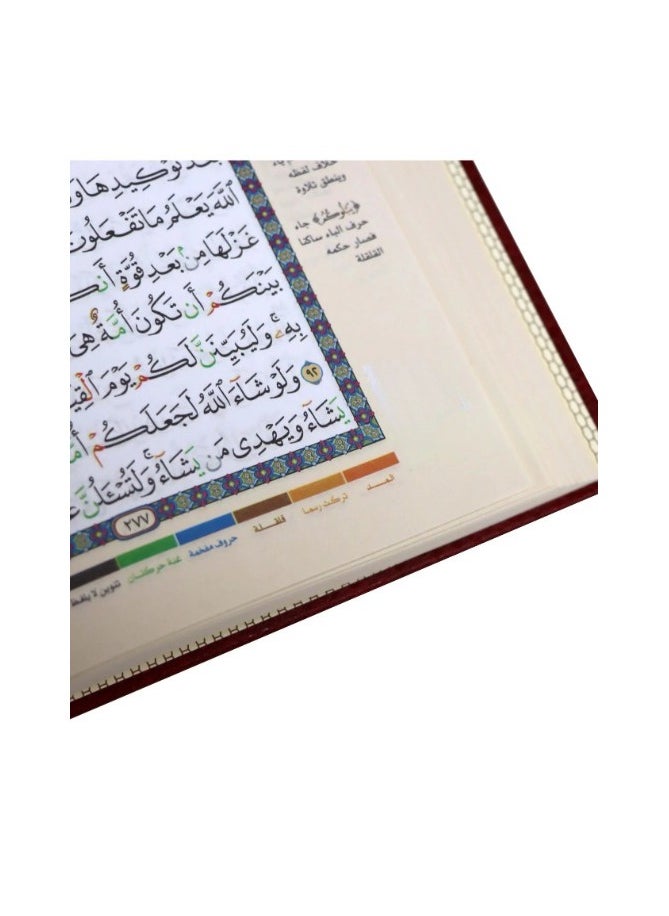 بَعْدَ تَوْكِيدِهَا وَ
ٱللَّهَ يَعْلَمُ مَا تَفْعَلُونَ
غَزْلَهَا مِنۢ بَعْدِ قُوَّةٍ أَنكَ
بَيْنَكُمْ أَن تَكُونَ أُمَّةٌ هِىَ
بِهِۦ ۚ وَلَيُبَيِّنَنَّ لَكُمْ يَوْمَ ٱلْقِيَ
٩٢ وَلَوْ شَآءَ ٱللَّهُ لَجَعَلَكُمْ أُمَّ
يَشَآءُ وَيَهْدِى مَن يَشَآءُ ۚ وَلَتُسْـَٔلُنَّ عَ
٢٧٧
خلاف لفظه
وينطق تلاوة
جاء
حرف الباء ساكنا
فصار حكمه
القلقلة
المد
تركت رسما
قلقلة
حروف مفخمة
غنة حركتان
تنوين لا يلفظ